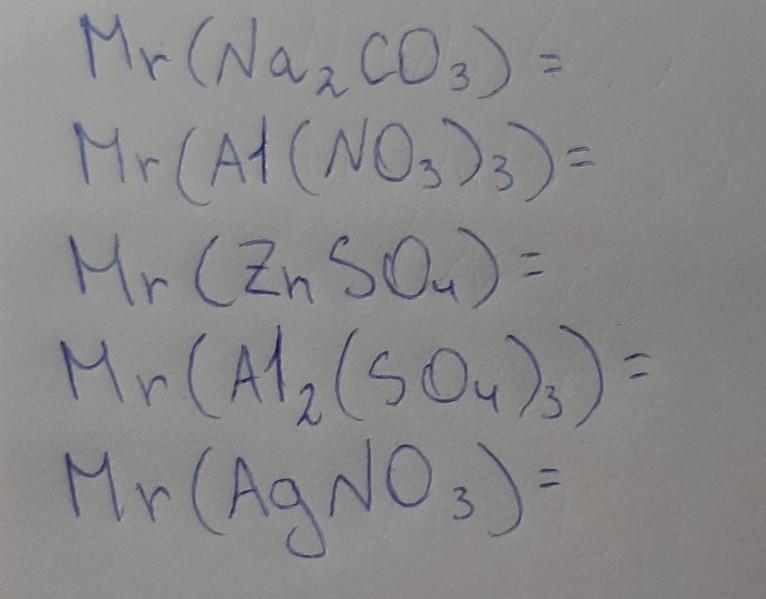 Mr(Na₂CO₃)=
Mr(Al(NO₃)₃)=
Mr(ZnSO₄)=
Mr(Al₂(SO₄)₃)=
Mr(AgNO₃)=